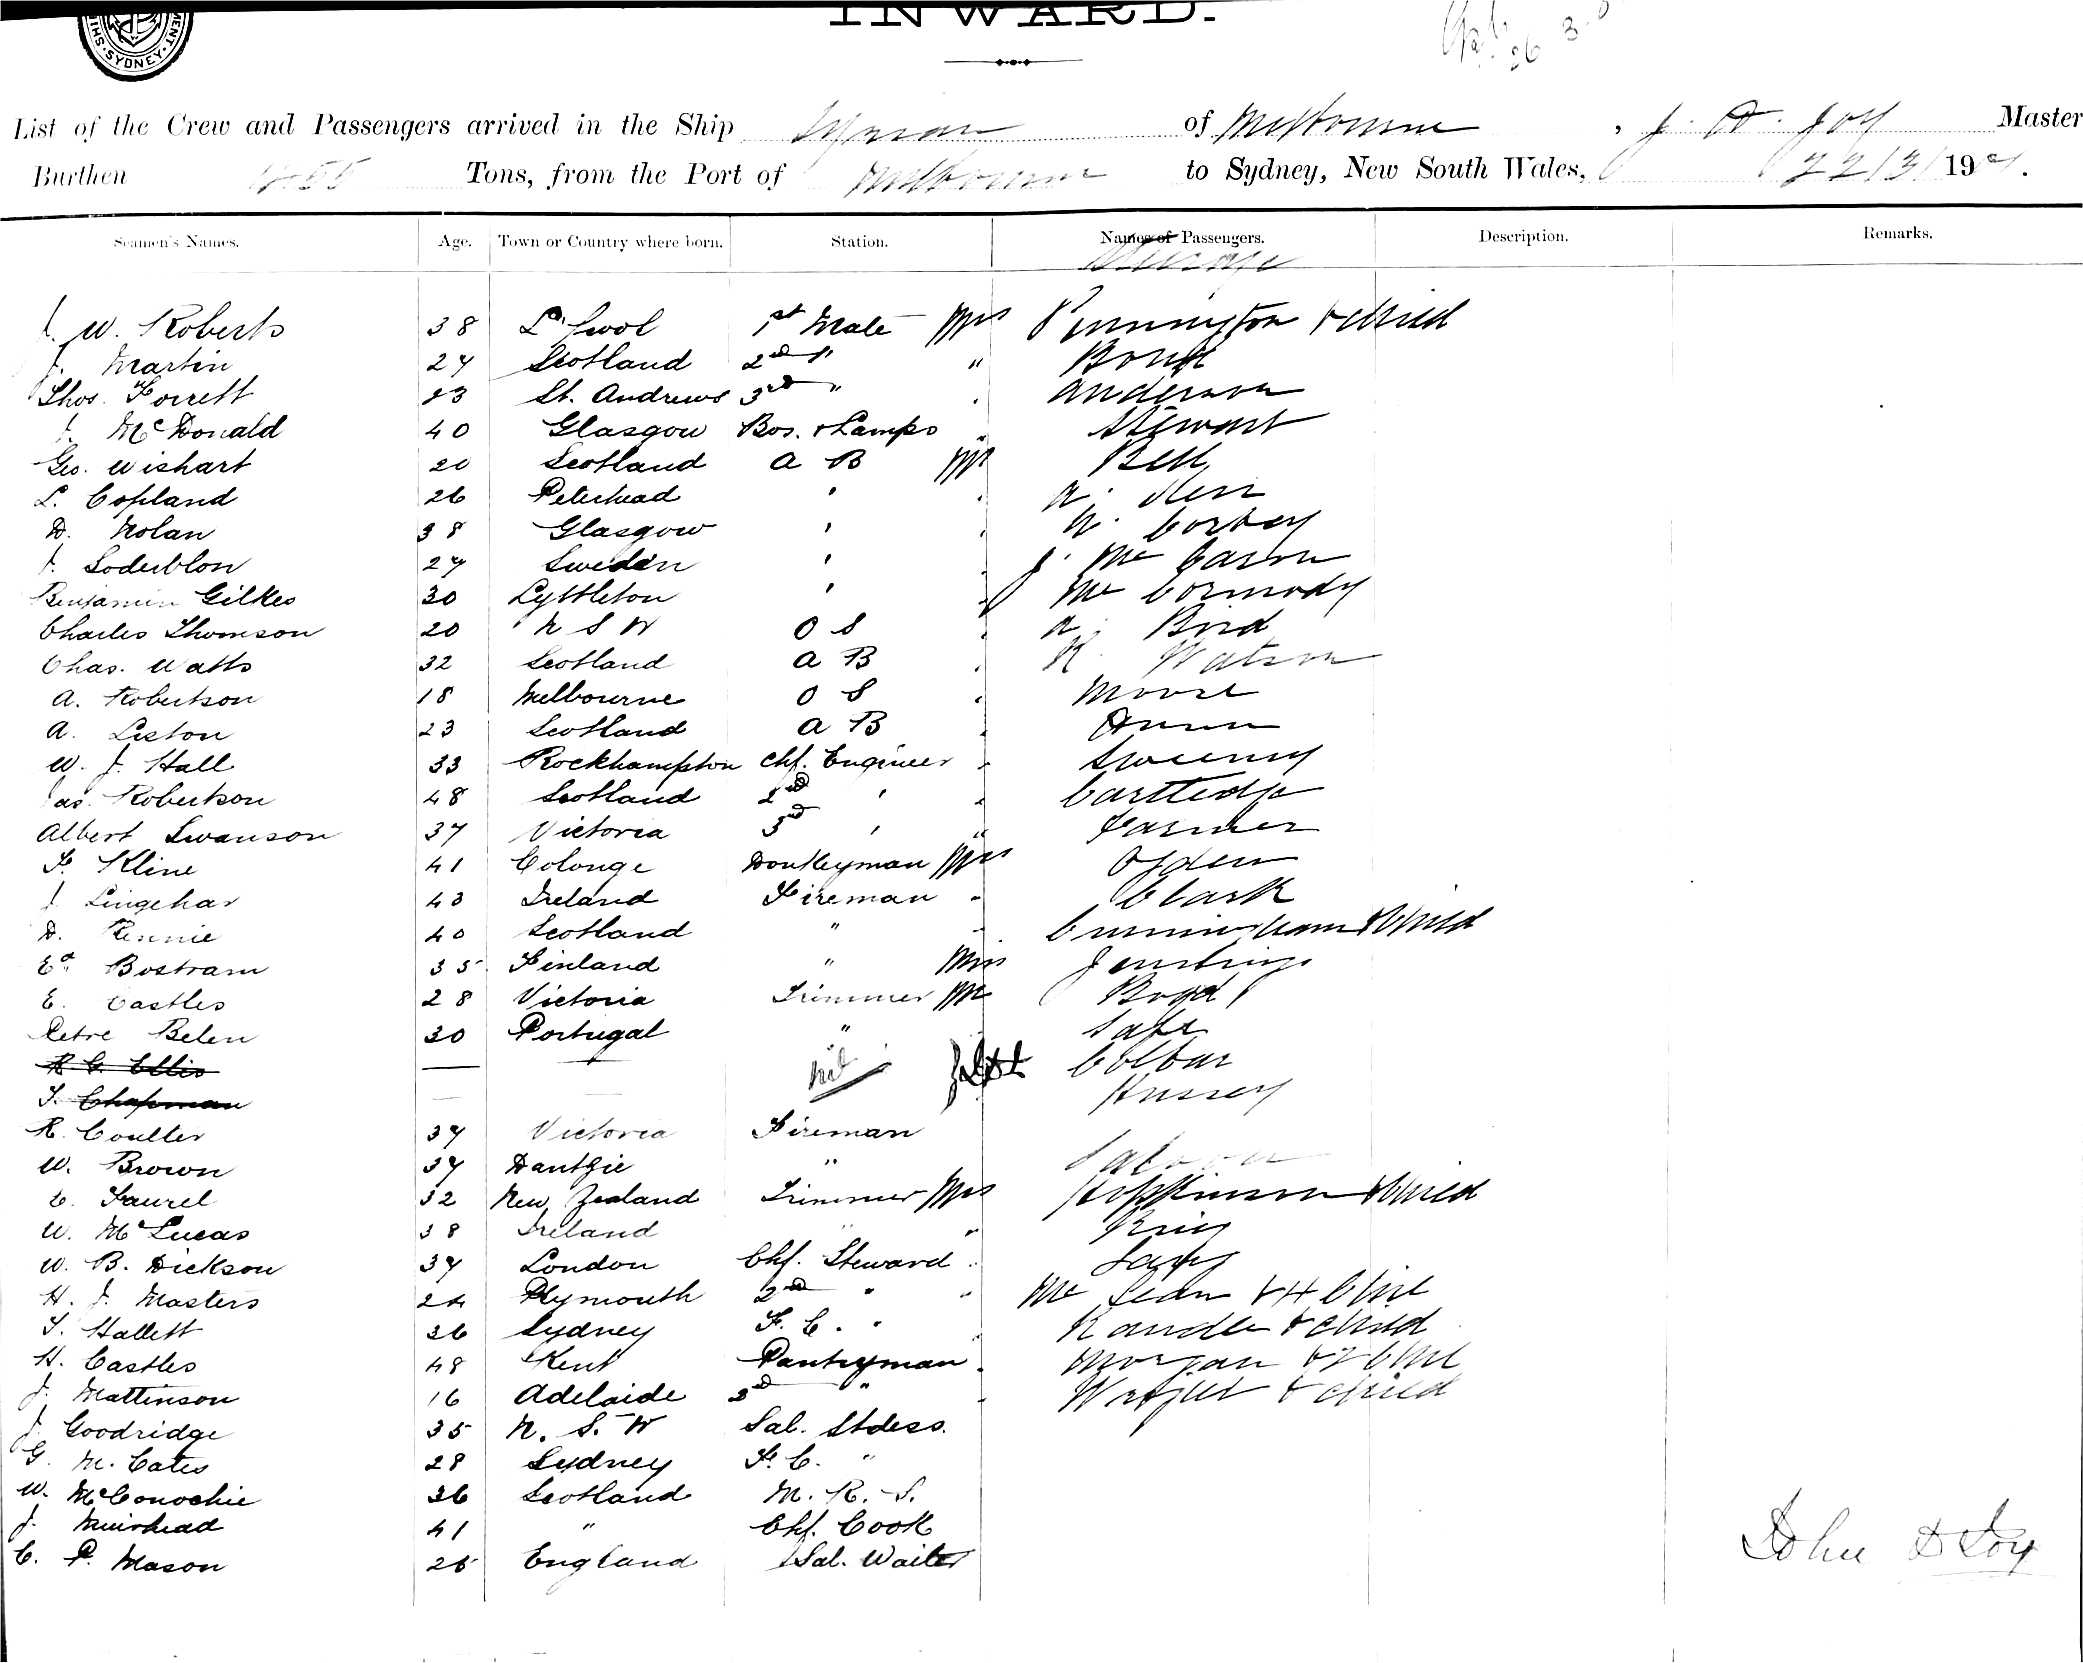 SYDNEY
INWARD.
List of the Crew and Passengers arrived in the Ship of Melbourne, J. D. Joy Master
Burthen Tons, from the Port of Melbourne to Sydney, New South Wales, 22/3/190
Seamen's Names. Age. Town or Country where born. Station. Names of Passengers. Description. Remarks.
Steerage
J. W. Roberts 38 L'pool 1st Mate Mrs Pennington & child
J. Martin 27 Scotland 2nd " "
Thos. Forrett 23 St. Andrews 3rd " Anderson
J. McDonald 40 Glasgow Bos. & Lamps Stewart
Geo. Wishart 20 Scotland A B Mr Bell
L. Copland 26 Peterhead '
D. Nolan 38 Glasgow '
J. Soderblon 27 Sweden '
Benjamin Gilkes 30 Lyttleton ' McCormody
Charles Thomson 20 N S W O S A. Bird
Chas. Watts 32 Scotland A B R. Watson
A. Robertson 18 Melbourne O S Moore
A. Liston 23 Scotland A B
W. J. Hall 33 Rockhampton Chf. Engineer Sweeny
Jas. Robertson 48 Scotland 2nd ' Cartledge
Albert Swanson 37 Victoria 3rd ' " Farmer
F. Kline 41 Colonge Donkeyman Mrs Ogden
J. Lingehar 43 Ireland Fireman Clark
D. Rennie 40 Scotland " Cunningham & Child
Ed. Bostram 35 Finland " Miss Jennings
E. Castles 28 Victoria Trimmer Mr Boyd
Petre Belen 30 Portugal "
R G. Ellis —
T. Chapman — Hussey
R. Coulter 37 Victoria Fireman
W. Brown 37 Dantzic " Saloon
C. Faurel 32 New Zealand Trimmer Mrs Hopkinson & Child
W. McLucas 38 Ireland " " King
W. B. Dickson 37 London Chf. Steward
H. J. Masters 24 Plymouth 2nd "
T. Hallett 26 Sydney F. C. " Randle & child
H. Castles 48 Kent Pantryman Morgan & 2 Chil
J. Mattinson 16 Adelaide 2nd " Wright & child
J. Goodridge 35 N. S. W Sal. Stdess.
G. M. Cates 28 Sydney F. C. "
W. McConochie 36 Scotland M. R. S.
J. Muirhead 41 " Chf. Cook
C. P. Mason 26 England Sal. Waiter
John D Joy